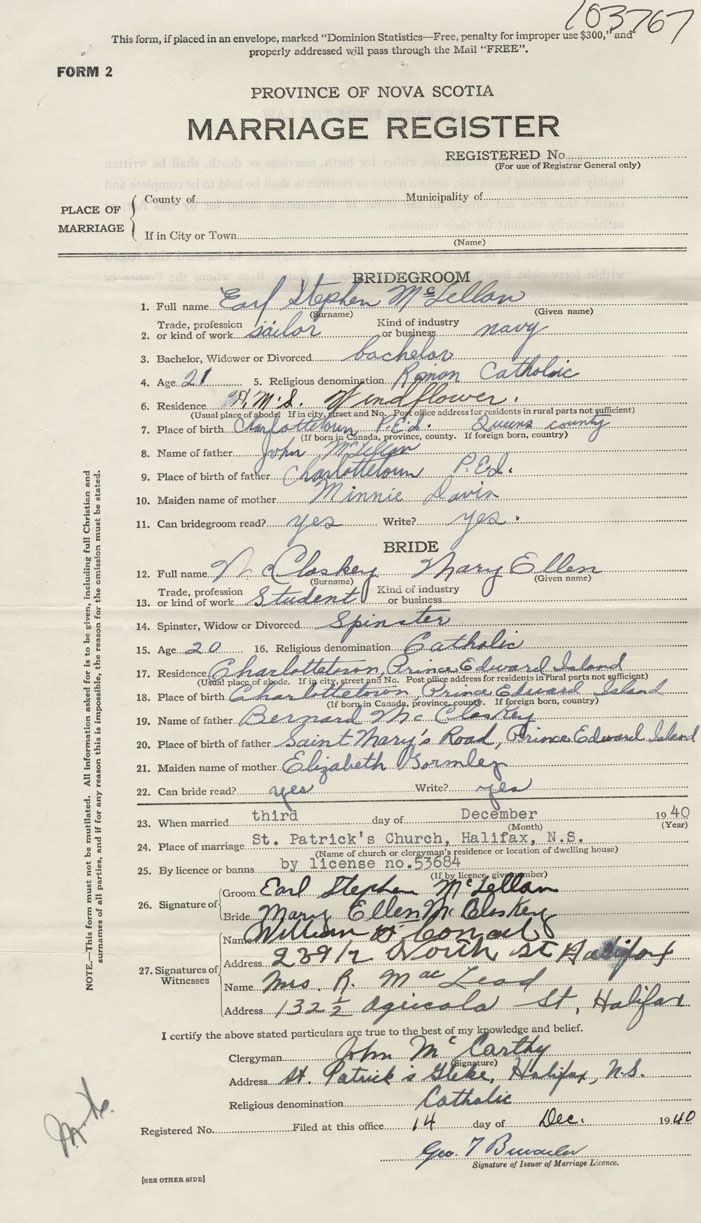 103767
This form, if placed in an envelope, marked "Dominion Statistics—Free, penalty for improper use $300," and
properly addressed will pass through the Mail "FREE".
FORM 2
PROVINCE OF NOVA SCOTIA
MARRIAGE REGISTER
REGISTERED No.
(For use of Registrar General only)
PLACE OF MARRIAGE
County of Municipality of
If in City or Town
(Name)
BRIDEGROOM
1. Full name Earl Stephen McLellan
(Surname) (Given name)
2. Trade, profession or kind of work sailor Kind of industry or business navy
3. Bachelor, Widower or Divorced bachelor
4. Age 21 5. Religious denomination Roman Catholic
6. Residence H.M.S. Windflower.
(Usual place of abode. If in city, street and No. Post office address for residents in rural parts not sufficient)
7. Place of birth Charlottetown P.E.I. Queens county
(If born in Canada, province, county. If foreign born, country)
8. Name of father John McLellan
9. Place of birth of father Charlottetown P.E.I.
10. Maiden name of mother Minnie
11. Can bridegroom read? yes Write? yes.
BRIDE
12. Full name McCloskey Mary Ellen
(Surname) (Given name)
13. Trade, profession or kind of work Student Kind of industry or business
14. Spinster, Widow or Divorced Spinster
15. Age 20 16. Religious denomination Catholic
17. Residence Charlottetown, Prince Edward Island
(Usual place of abode. If in city, street and No. Post office address for residents in rural parts not sufficient)
18. Place of birth Charlottetown, Prince Edward Island
(If born in Canada, province, county. If foreign born, country)
19. Name of father Bernard McCloskey
20. Place of birth of father Saint Mary's Road, Prince Edward Island
21. Maiden name of mother Elizabeth Gormley
22. Can bride read? yes Write? yes
23. When married third day of December 1940
(Month) (Year)
24. Place of marriage St. Patrick's Church, Halifax, N.S.
(Name of church or clergyman's residence or location of dwelling house)
25. By licence or banns by license no.53684
(If by licence, give number)
26. Signature of
Groom Earl Stephen McLellan
Bride Mary Ellen McCloskey
27. Signatures of Witnesses
Name William
Address 239 1/2 North St Halifax
Name Mrs. R. MacLeod
Address 132 1/2 Agricola St, Halifax
I certify the above stated particulars are true to the best of my knowledge and belief.
Clergyman John McCarthy
(Signature)
Address St. Patrick's Glebe, Halifax, N.S.
Religious denomination Catholic
Registered No. Filed at this office 14 day of Dec. 1940
Geo. T
Signature of Issuer of Marriage Licence.
[SEE OTHER SIDE]
NOTE.—This form must not be mutilated. All information asked for is to be given, including full Christian and
surnames of all parties, and if for any reason this is impossible, the reason for the omission must be stated.